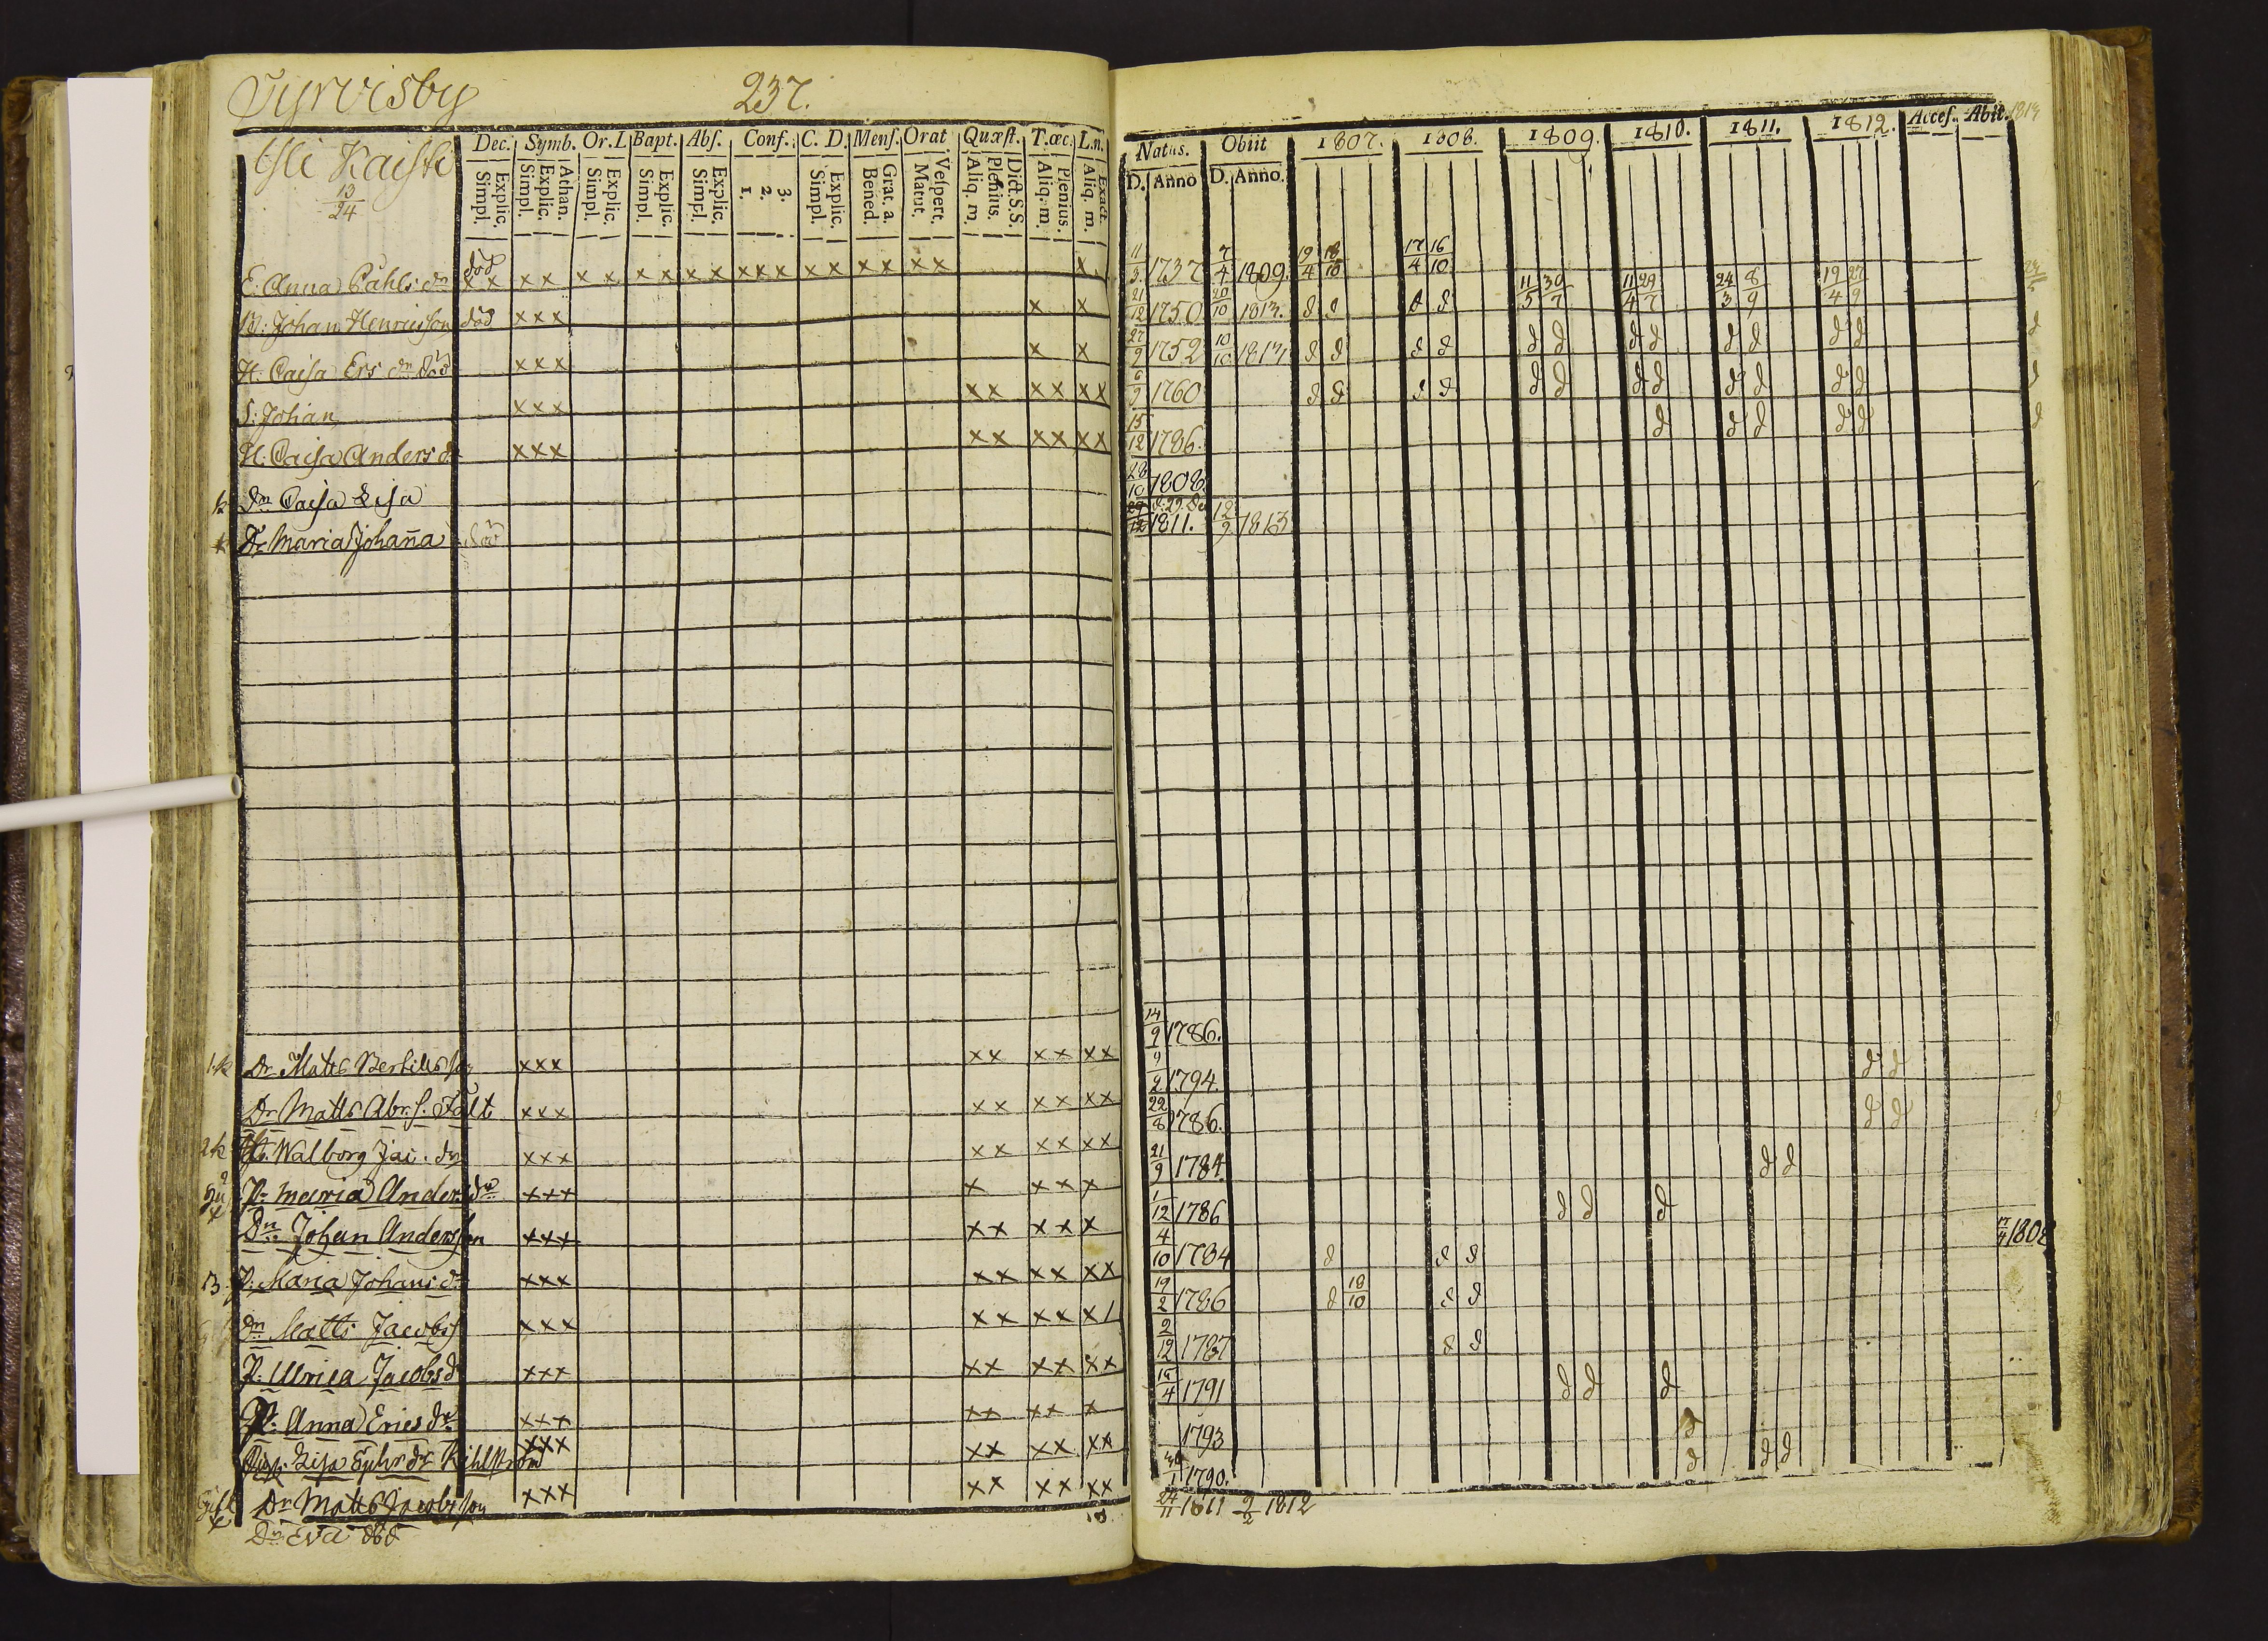 Syrvisby 237.
Ysli Kaisti
13/24
Dec. Symb. Or. L Bapt. Abs. Conf. C. D. Mens. Orat Quæst. T.œc. L.n.
Explic. Simpl. Athan. Explic. Simpl. Explic. Simpl. Explic. Simpl. Explic. Simpl. 3. 2. 1. Explic. Simpl. Grat. a. Bened. Vespert. Matut. Dict. S.S. Plenius. Aliq. m. Plenius. Aliq. m. Exact. Aliq. m.
Natus. Obiit 1807. 1808. 1809. 1810. 1811. 1812. Acces. Abit. 1813
D. Anno D. Anno.
E: Anna Påhls dr död x x x x x x x x x x x x x x x x x x x x 11/3 1737 7/4 1809 19/4 18/10 17/4 16/10
B: Johan Henricsson död x x x x x 21/12 1750 20/10 1813. d d d d 11/5 30/7 11/4 29/7 24/3 8/9 19/4 27/9
H: Caisa Ers dr död x x x x x 27/9 1752 10/10 1813 d d d d d d d d d d d d d
S: Johan x x x x x x x x x 6/9 1760 d d d d d d d d d d d d d
H: Caisa Anders d x x x x x x x x x 15/12 1786. d d d d d d
Dr Caisa Lisa 28/10 1808
Dr Maria Johaña död 29/12 1811. 12/9 1813
Dr Matts Bertillsson x x x x x x x x x 14/9 1786.
Dr Matts Abr. s. Fält x x x x x x x x x 9/2 1794. d d
Walborg Jac. dr x x x x x x x x x 22/8 1786. d d d
P. Maria Anders dr x x x x x x x 21/9 1784. d d
Dr Johan Andersson x x x x x x x x 1/12 1786 d d d
P: Maria Johans d x x x x x x x x x 4/10 1784 d d d 1808
Dr Matts Jacobs x x x x x x x x 19/2 1786 d 18/10 d d
P. Ulrica Jacobs d x x x x x x x x x 2/12 1787 d d
P: Anna Erics dr x x x x x x x x 1791 d d d
Lisa Ephr. dr Kihlström x x x x x x x x x 1793 d
Gift Dr Matts Jacobsson x x x x x x x x x 1790. d d d
Dr Eva död 24/11 1811 9/2 1812